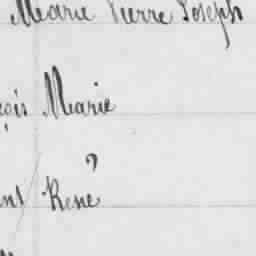 Marie Pierre Joseph
çois Marie
ent René